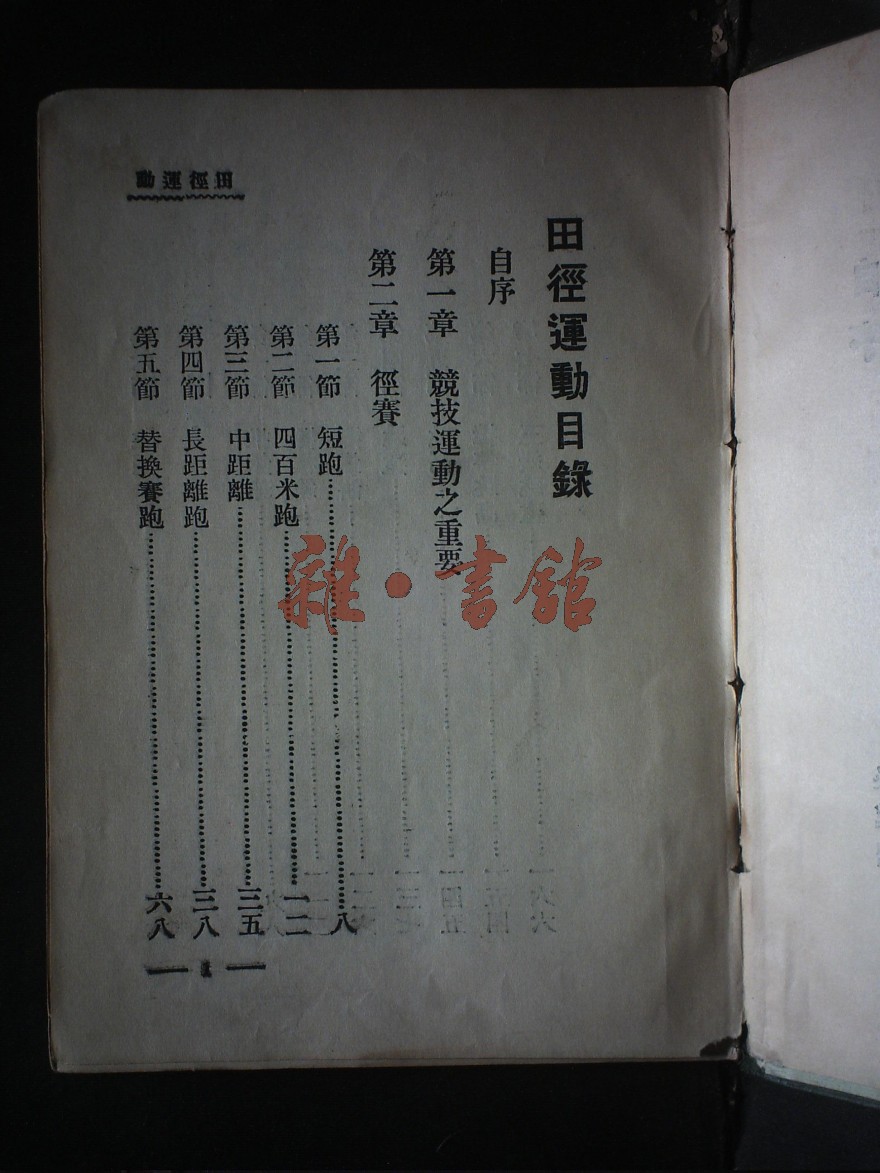 田徑運動
田徑運動目錄
自序
第一章 競技運動之重要
第二章 徑賽
第一節 短跑……八
第二節 四百米跑……一二
第三節 中距離……三五
第四節 長距離跑……三八
第五節 替換賽跑……六八
雜·書館